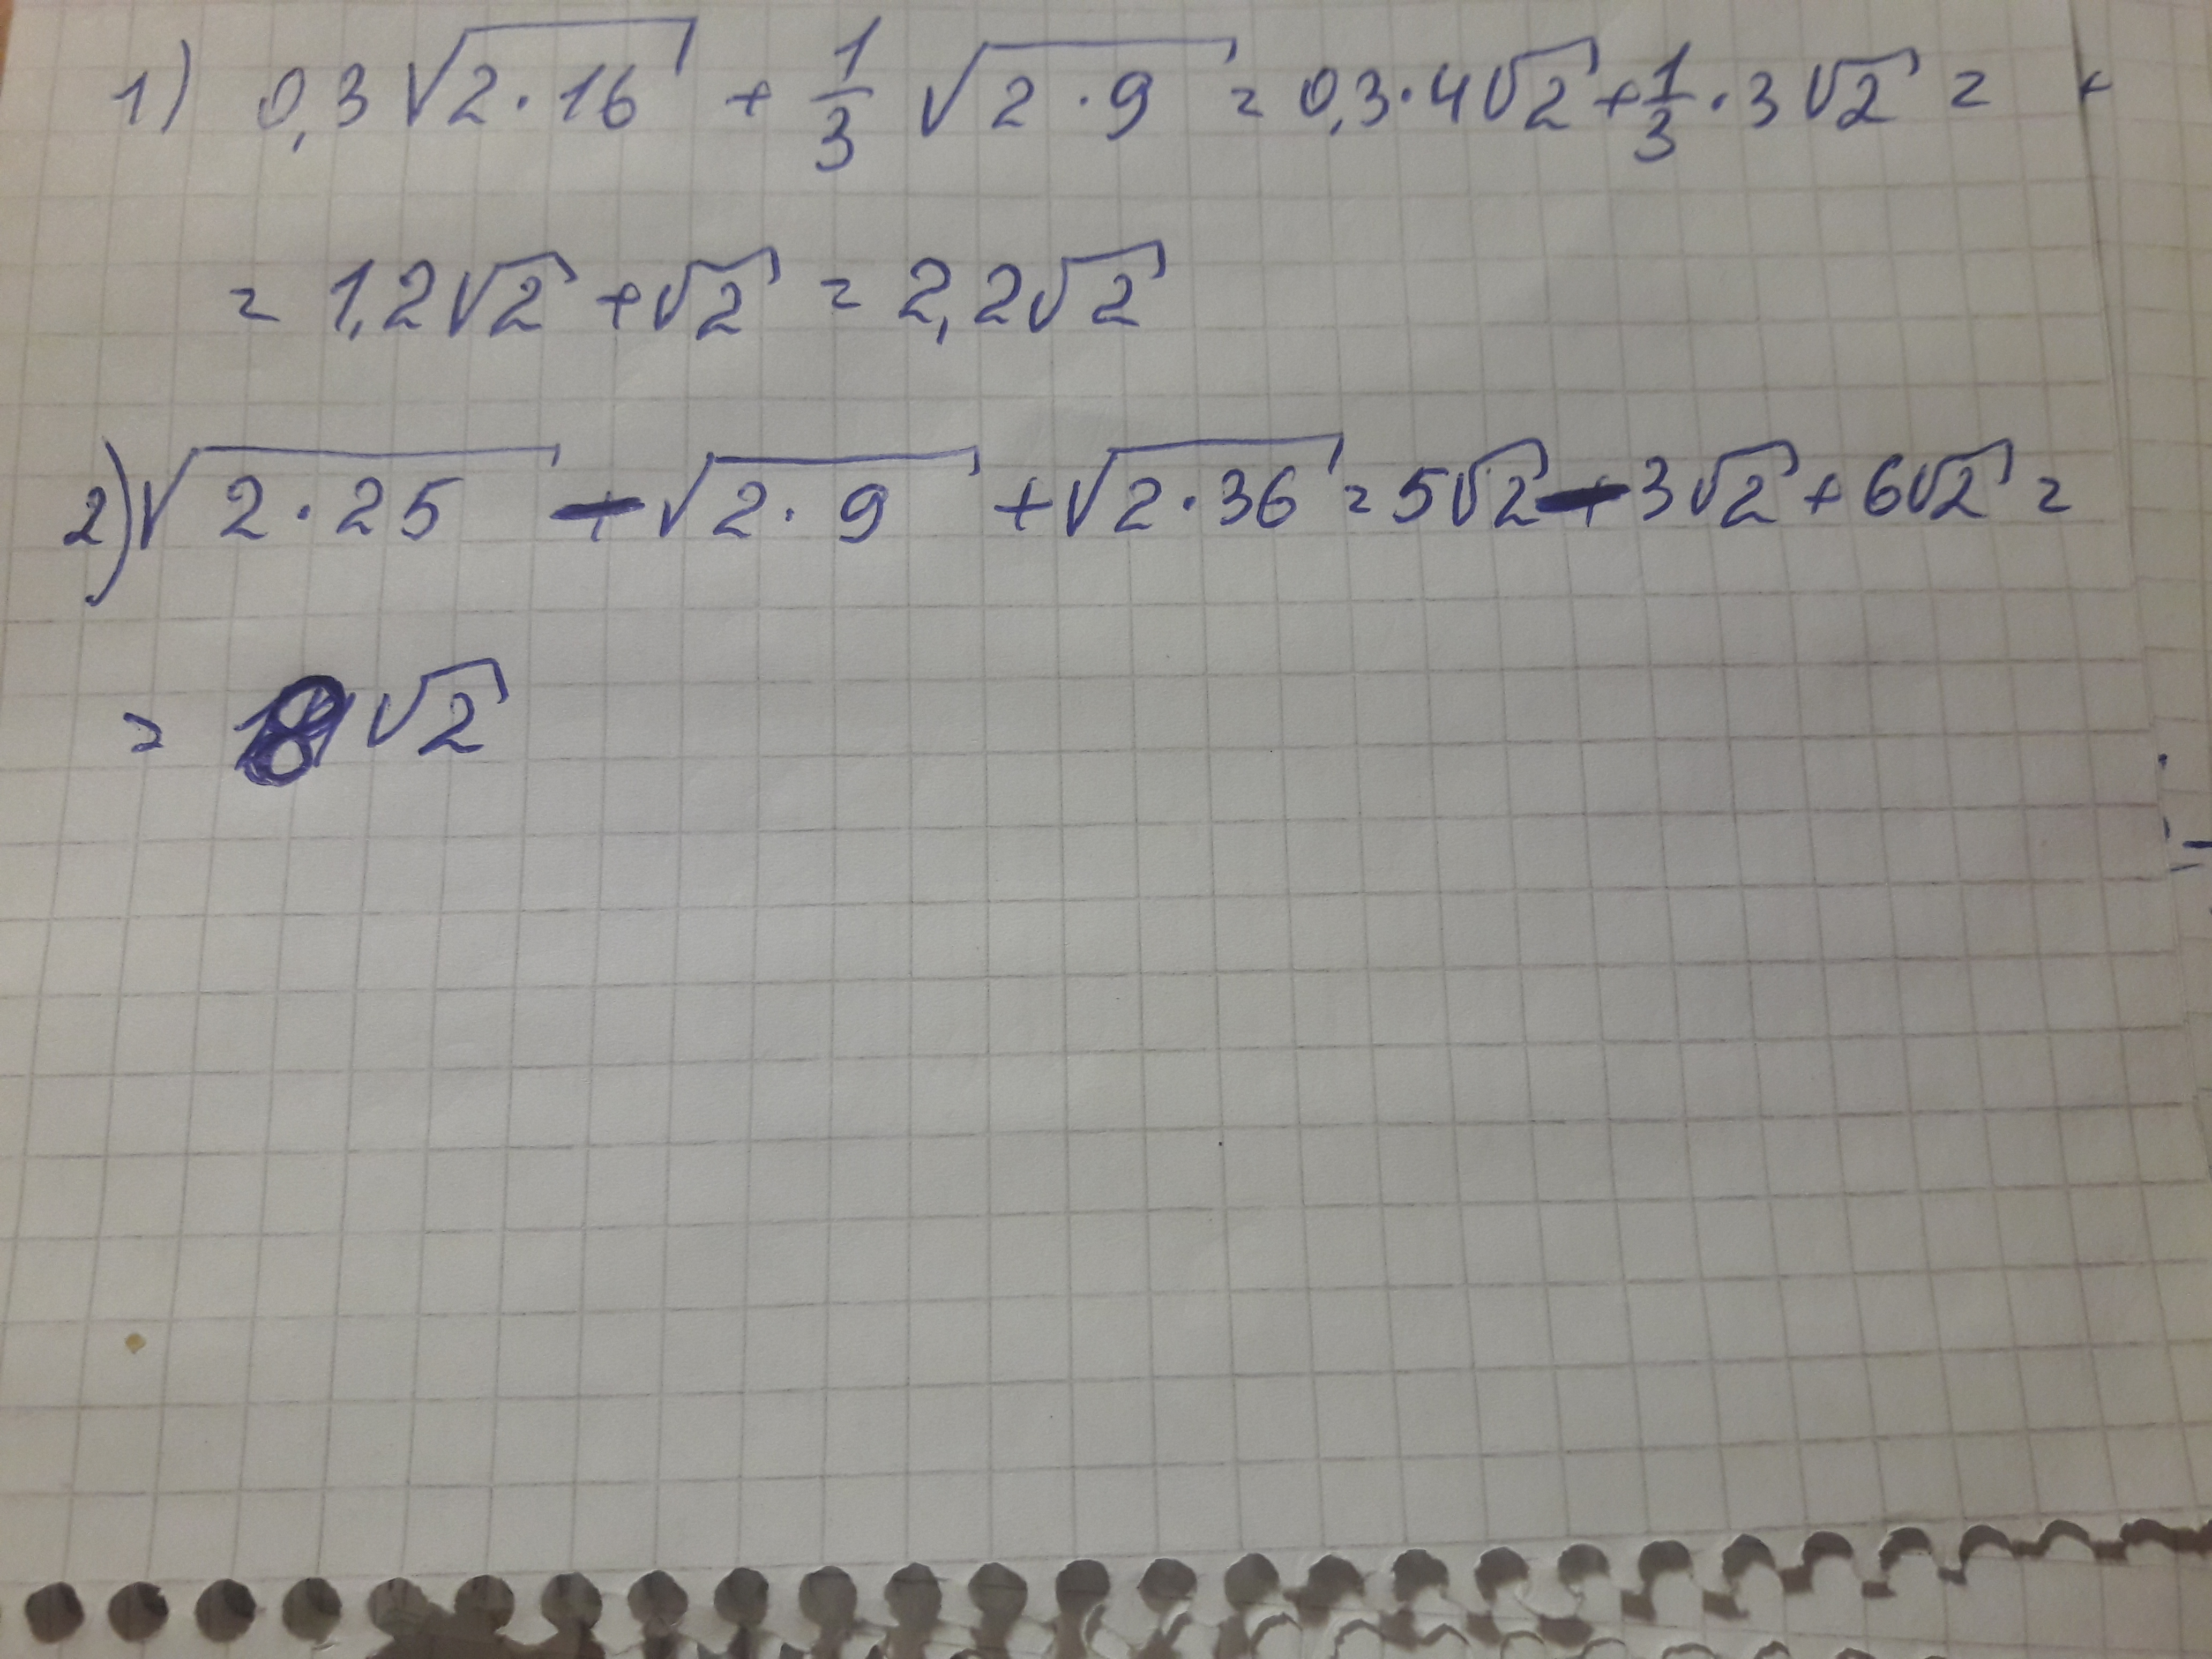 1) 0,3√2·16 + 1/3 √2·9 = 0,3·4√2 + 1/3·3√2 =
= 1,2√2 + √2 = 2,2√2
2) √2·25 - √2·9 + √2·36 = 5√2 - 3√2 + 6√2 =
= 8√2